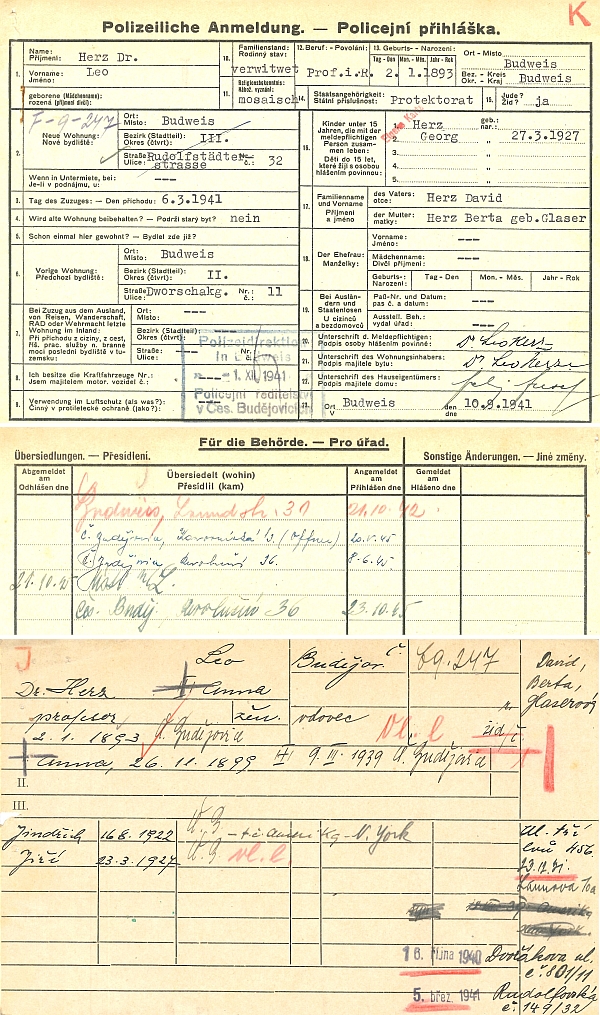 Polizeiliche Anmeldung. — Policejní přihláška.
K
1.
Name:
Příjmení:
Herz Dr.
Vorname:
Jméno:
Leo
geborene (Mädchenname):
rozená (příjmení dívčí):
10.
Familienstand:
Rodinný stav:
verwitwet
11.
Religionsbekenntnis:
Nábož. vyznání:
mosaisch
12. Beruf - Povolání:
Prof.i.R.
13. Geburts- - Narození:
Tag - Den
Mon. - Měs.
Jahr - Rok
2. 1. 1893
Ort - Místo
Budweis
Bez. - Kreis
Okr. - Kraj
Budweis
14.
Staatsangehörigkeit:
Státní příslušnost:
Protektorat
15.
Jude?
Žid?
ja
F-9-247
2.
Neue Wohnung:
Nové bydliště:
Ort:
Místo:
Budweis
Bezirk (Stadtteil):
Okres (čtvrť):
III.
Straße:
Ulice:
Rudolfstädter-
strasse
Nr.:
č.:
32
Wenn in Untermiete, bei:
Je-li v podnájmu, u:
---
3.
Tag des Zuzuges: - Den příchodu:
6.3.1941
4.
Wird alte Wohnung beibehalten? - Podrží starý byt?
nein
5.
Schon einmal hier gewohnt? - Bydlel zde již?
6.
Vorige Wohnung:
Předchozí bydliště:
Ort:
Místo:
Budweis
Bezirk (Stadtteil):
Okres (čtvrť):
II.
Straße:
Ulice:
Dworschakg.
Nr.:
č.:
11
7.
Bei Zuzug aus dem Ausland,
von Reisen, Wanderschaft,
RAD oder Wehrmacht letzte
Wohnung im Inland:
Při příchodu z ciziny, z cest,
říš. prac. služby n. branné
moci poslední bydliště v tu-
zemsku:
Ort:
Místo:
---
Bezirk (Stadtteil):
Okres (čtvrť):
Straße:
Ulice:
---
Polizeidirektion
in Budweis
- 1. XII. 1941
Policejní ředitelství
v Čes. Budějovicích
8.
Ich besitze die Kraftfahrzeuge Nr.:
Jsem majitelem motor. vozidel č.:
---
9.
Verwendung im Luftschutz (als was?):
Činný v protiletecké ochraně (jako?):
---
16.
Kinder unter 15
Jahren, die mit der
meldepflichtigen
Person zusam-
men leben:
Děti do 15 let,
které žijí s osobou
hlášením povinnou:
1. Herz
geb.:
nar.:
2. Georg
27.3.1927
3.
4.
5.
17.
Familienname
und Vorname
Příjmení
a jméno
des Vaters:
otce:
Herz David
der Mutter:
matky:
Herz Berta geb.Glaser
18.
Der Ehefrau:
Manželky:
Vorname:
Jméno:
---
Mädchenname:
Dívčí příjmení:
---
Geburts-:
Narození:
Tag - Den
Mon. - Měs.
Jahr - Rok
19.
Bei Auslän-
dern und
Staatenlosen
U cizinců
a bezdomovců
Paß-Nr. und Datum:
pas č. a datum:
---
Ausstell. Beh.:
vydal úřad:
---
20.
Unterschrift d. Meldepflichtigen:
Podpis osoby hlášením povinné:
Dr. Leo Herz
21.
Unterschrift des Wohnungsinhabers:
Podpis majitele bytu:
Dr Leo Herz
22.
Unterschrift des Hauseigentümers:
Podpis majitele domu:
23.
Ort
V
Budweis
den
dne
10.9.1941
Für die Behörde. — Pro úřad.
Übersiedlungen. — Přesídlení.
Sonstige Änderungen. — Jiné změny.
Abgemeldet am
Odhlášen dne
Übersiedelt (wohin)
Přesídlil (kam)
Angemeldet am
Přihlášen dne
Gemeldet am
Hlášeno dne
Budweis, Lannastr. 31
21.10.42
Č. Budějovice,
20.V.45
Č. Budějovice 36.
8-6.45
21.10.45
Most n/L.
Čes. Buděj. Revoluční 36
23.10.45
J
Dr. Herz
Leo
I. Anna
Budějov. Č.
69.247
David,
Berta,
Glaserová
profesor
žen.
vdovec
vl. l
žid.
2.1.1893 Č. Budějovice
Anna, 26.11.1899
9.III.1939 Č. Budějovice
II.
III.
Jindřich 16.8.1922 Č.B. - t.č. Amerika - N. York
Jiří 23.3.1927 Č.B. vl. l.
Ul. tří
lvů 456
Lannova 10a
16. října 1940
Dvořákova ul.
č. 801/11
5. břez. 1941
Rudolfovská
č. 149/32